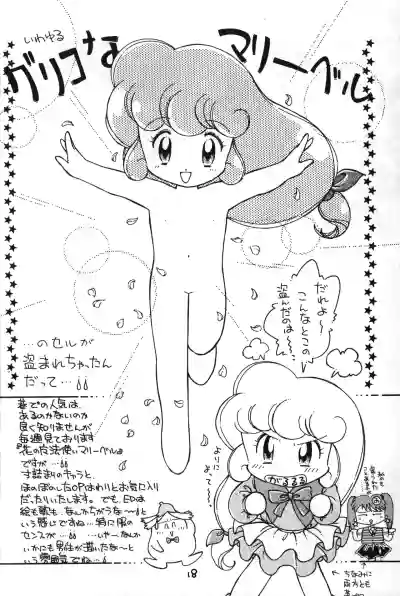 いわゆる
グリコな
マリーベル
だれよ〜
こんなとこの
盗んだのは〜
…のセルが
盗まれちゃったん
だって…
巷での人気は、
あるのかないのか
良く知りませんが
毎週見ております
「花の魔法使いマリーベル」
ですが…
寸詰まりのキャラと
ほのぼのしたOPはわりとお気に入り
だったりいたします。でも、EDは
絵も歌も なんかちがうな〜と
いう感じですね…特に服の
センスが……いやーなんか
いかにも男性が描いたな〜と
いう雰囲気でね…
よりに
よって〜
がるるる
18
ちなみに
両方とも